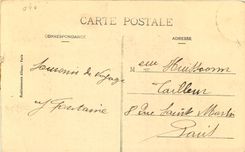 CARTE POSTALE
CORRESPONDANCE
ADRESSE
Souvenir de Voyage
Fontaine
M
Tailleur
8 Rue Saint Martin
Paris